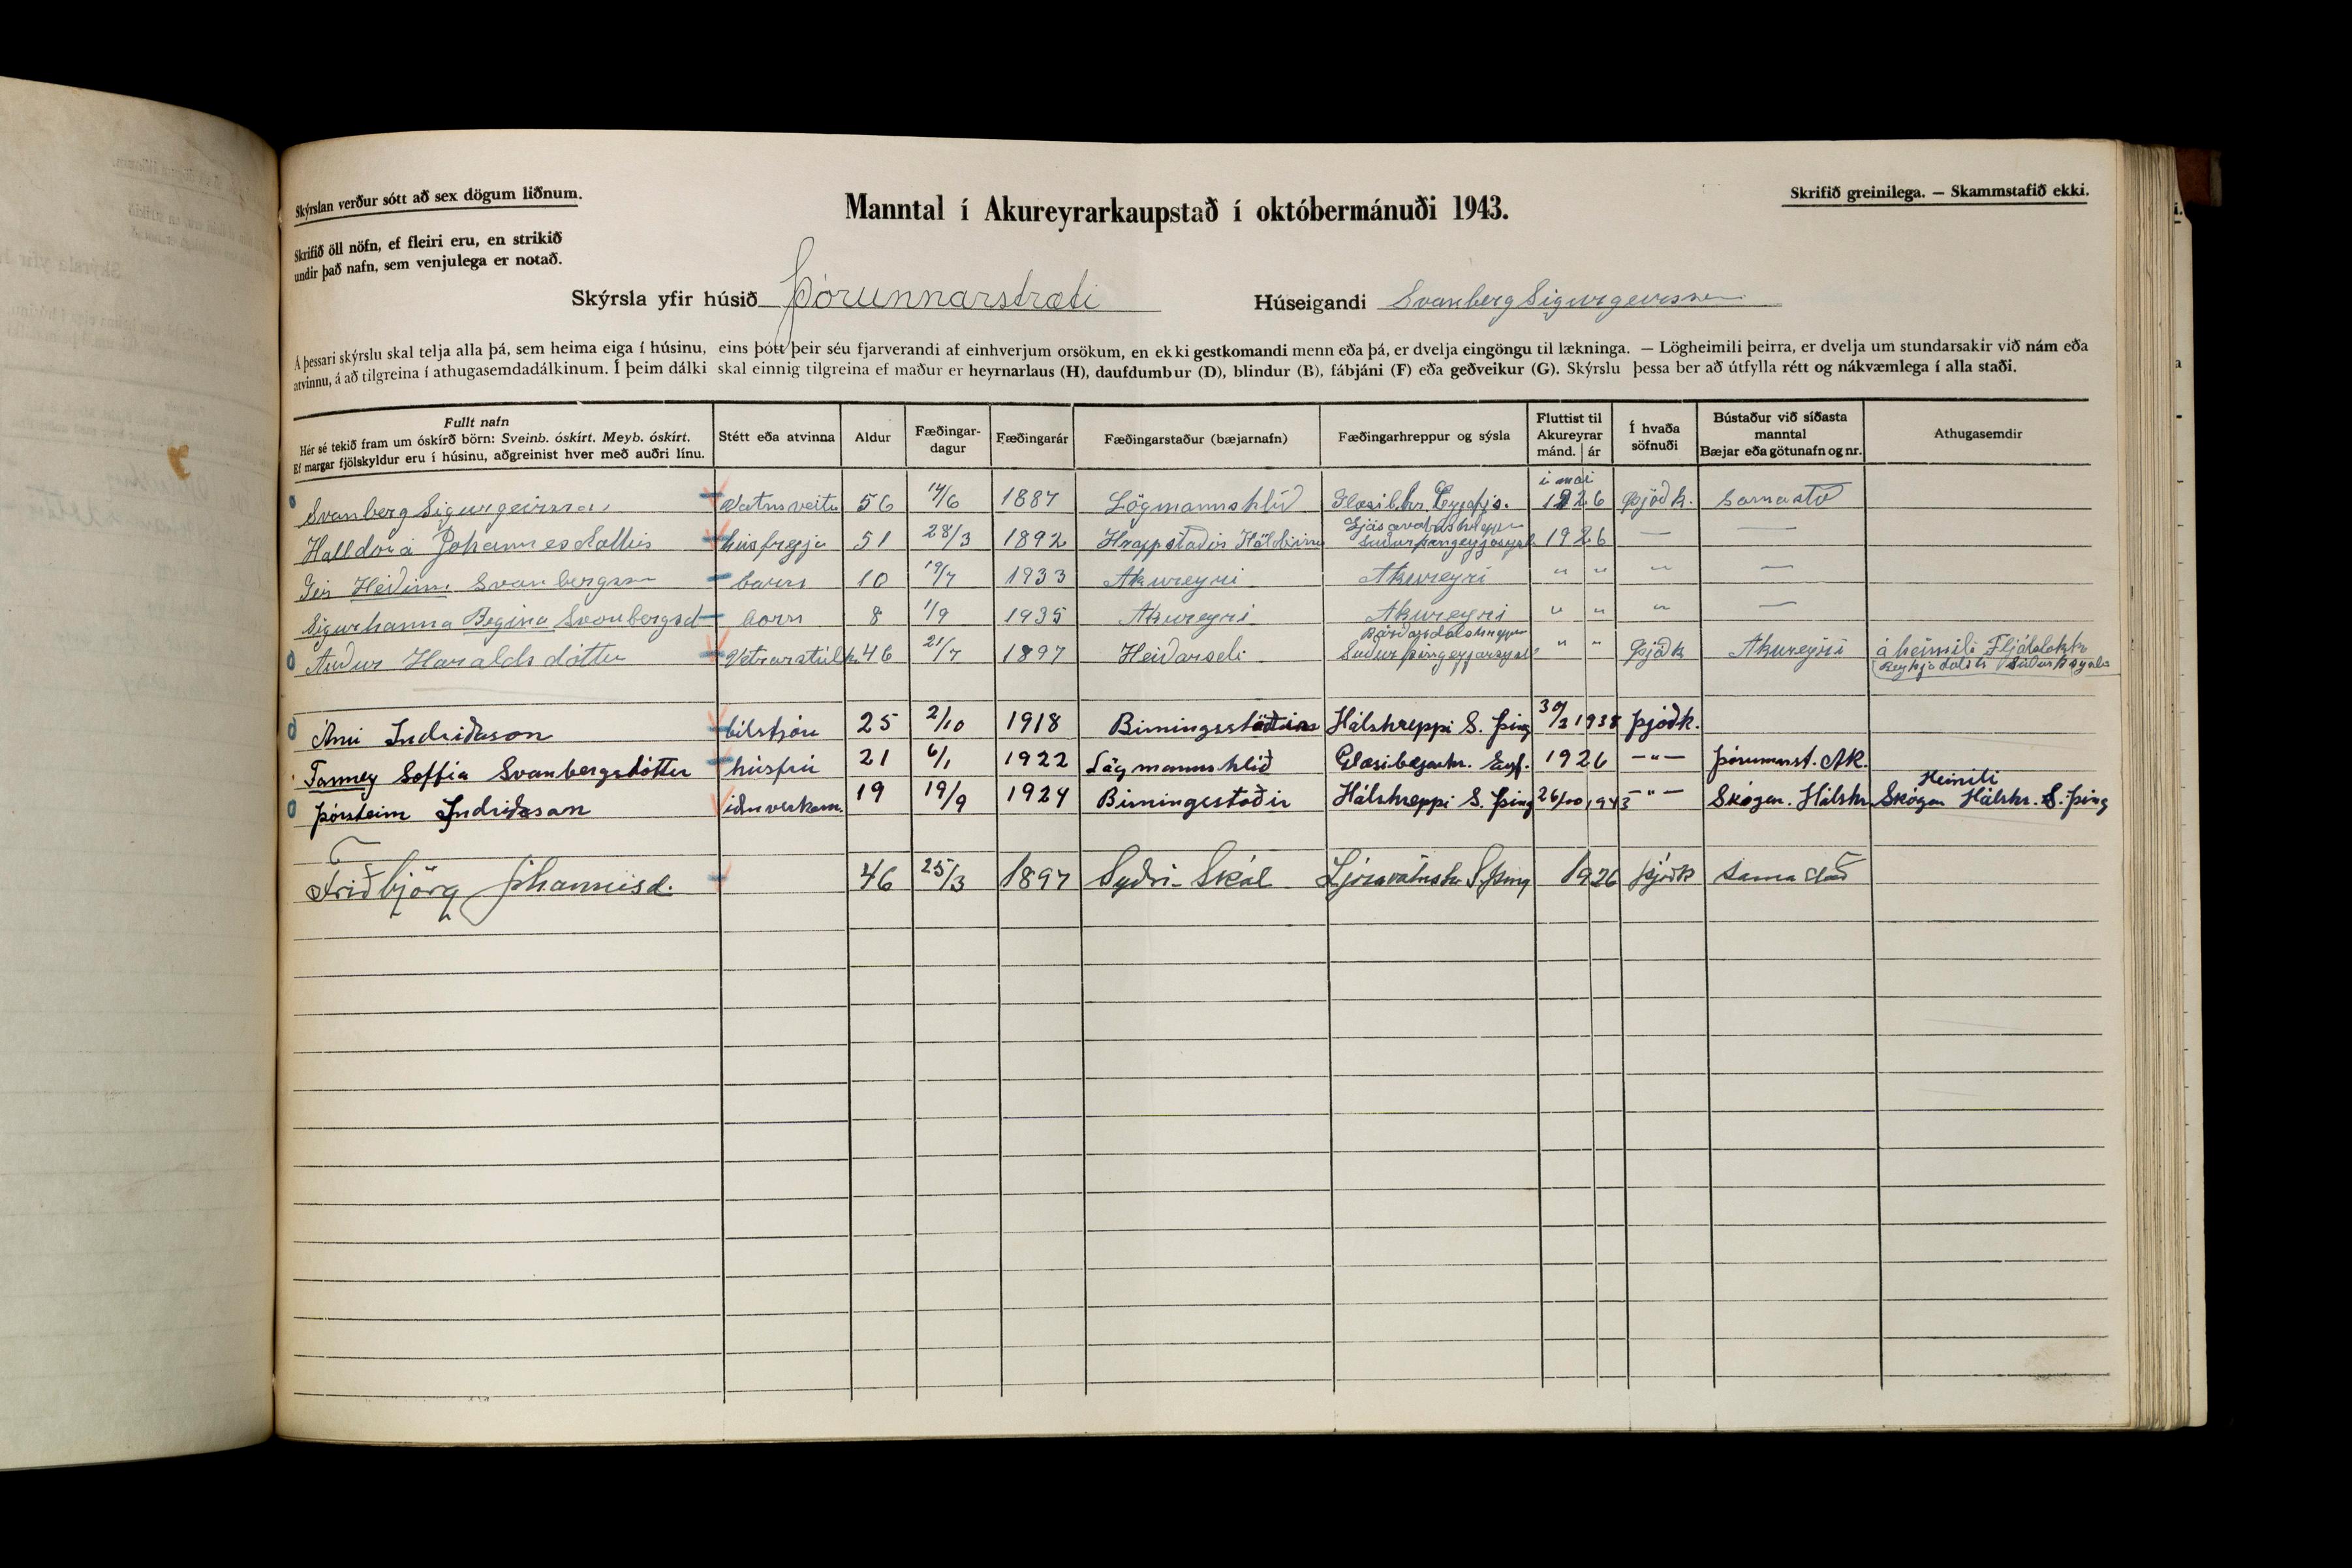 Skýrslan verður sótt að sex dögum liðnum.
Manntal í Akureyrarkaupstað í októbermánuði 1943.
Skrifið greinilega. — Skammstafið ekki.
Skrifið öll nöfn, ef fleiri eru, en strikið
undir það nafn, sem venjulega er notað.
Skýrsla yfir húsið Þórunnarstræti Húseigandi Svanberg Sigurgeirsson
Á þessari skýrslu skal telja alla þá, sem heima eiga í húsinu, eins þótt þeir séu fjarverandi af einhverjum orsökum, en ekki gestkomandi menn eða þá, er dvelja eingöngu til lækninga. — Lögheimili þeirra, er dvelja um stundarsakir við nám eða
atvinnu, á að tilgreina í athugasemdadálkinum. Í þeim dálki skal einnig tilgreina ef maður er heyrnarlaus (H), daufdumbur (D), blindur (B), fábjáni (F) eða geðveikur (G). Skýrslu þessa ber að útfylla rétt og nákvæmlega í alla staði.
Fullt nafn
Hér sé tekið fram um óskírð börn: Sveinb. óskírt. Meyb. óskírt.
Ef margar fjölskyldur eru í húsinu, aðgreinist hver með auðri línu.
Stétt eða atvinna
Aldur
Fæðingar-
dagur
Fæðingarár
Fæðingarstaður (bæjarnafn)
Fæðingarhreppur og sýsla
Fluttist til
Akureyrar
mánd. ár
Í hvaða
söfnuði
Bústaður við síðasta
manntal
Bæjar eða götunafn og nr.
Athugasemdir
í mai
Svanberg Sigurgeirsson Vatnsveitu 56 14/6 1887 Lögmannshlíð Glæsib.hr. Eyjafjs. 1926 Þjóðk. Samastað
Halldóra Jóhannesdóttir húsfreyja 51 28/3 1892 Hrappstaðir Ljósavatnshreppur Suðurþingeyjasysla 1926 —
Geir Heiðimi Svanbergsson barn 10 19/7 1933 Akureyri Akureyri " " " —
Sigurhanna Regina Svanbergsd barn 8 1/9 1935 Akureyri Akureyri " " " —
Auður Haraldsdóttir Vetrarstulk. 46 21/7 1897 Heiðarseli Bárðardalshreppur Suðurþingeyjarsysla " " Þjóðk Akureyri á heimili
Árni Indriðason bílstjóri 25 2/10 1918 Birningsstöðum Hálshreppi S. Þing 30/3 1938 Þjóðk.
Fanney Soffía Svanbergsdóttir húsfrú 21 6/1 1922 Lögmannshlíð Glæsibæjarhr. Eyjf. 1926 —"— Þórunnarst. Ak.
Þórsteinn Indriðason iðnverkam. 19 19/9 1924 Birningsstaðir Hálshreppi S. Þing 26/10 1943 —"— Skógar. Hálshr. Heimili Skógar Hálshr. S.-Þing
Friðbjörg Jóhannesd. 46 25/3 1897 Syðri-Skál Ljósavatnshr S.Þing 1926 Þjóðk Sama stað